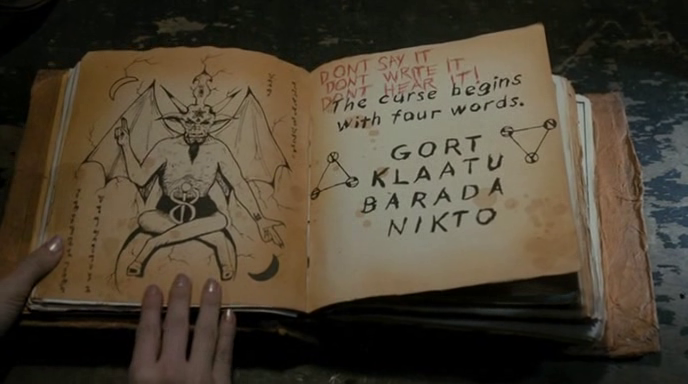 DONT SAY IT
DONT WRITE IT
DONT HEAR IT!
The curse begins
with four words.
GORT
KLAATU
BARADA
NIKTO